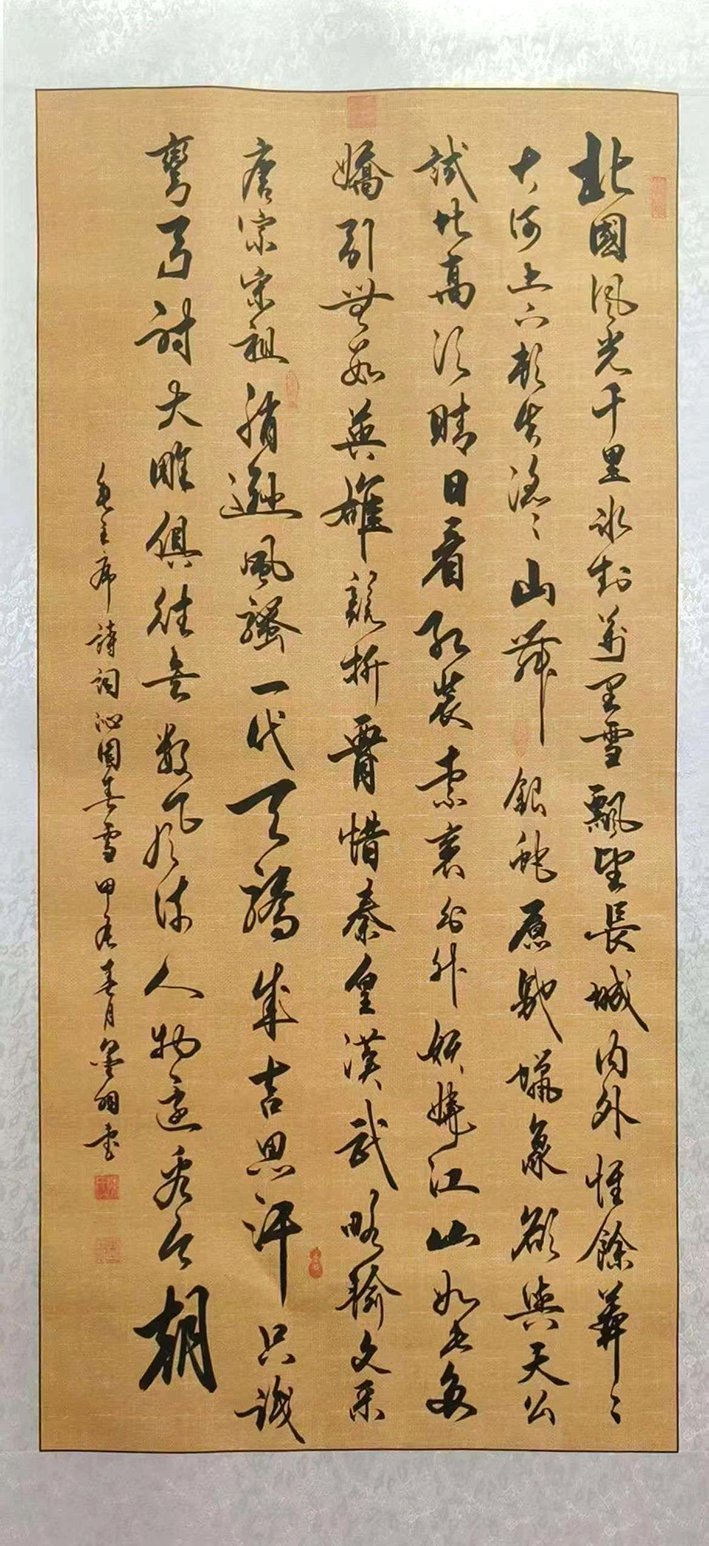 北國风光千里冰封萬里雪飄望長城内外惟餘莽〻
大河上下頓失滔〻山舞銀蛇原馳蠟象欲與天公
試比高須晴日看紅裝素裹分外妖嬈江山如此多
嬌引無數英雄競折腰惜秦皇漢武略輸文采
唐宗宋祖稍遜風騷一代天驕成吉思汗只識
彎弓射大雕俱往矣數风流人物還看今朝
毛主席詩詞沁園春雪甲辰春月墨羽書